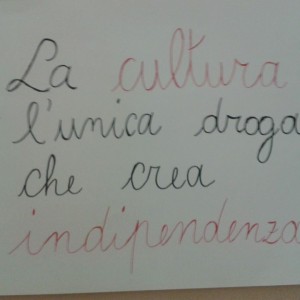 La cultura
l'unica droga
che crea
indipendenza